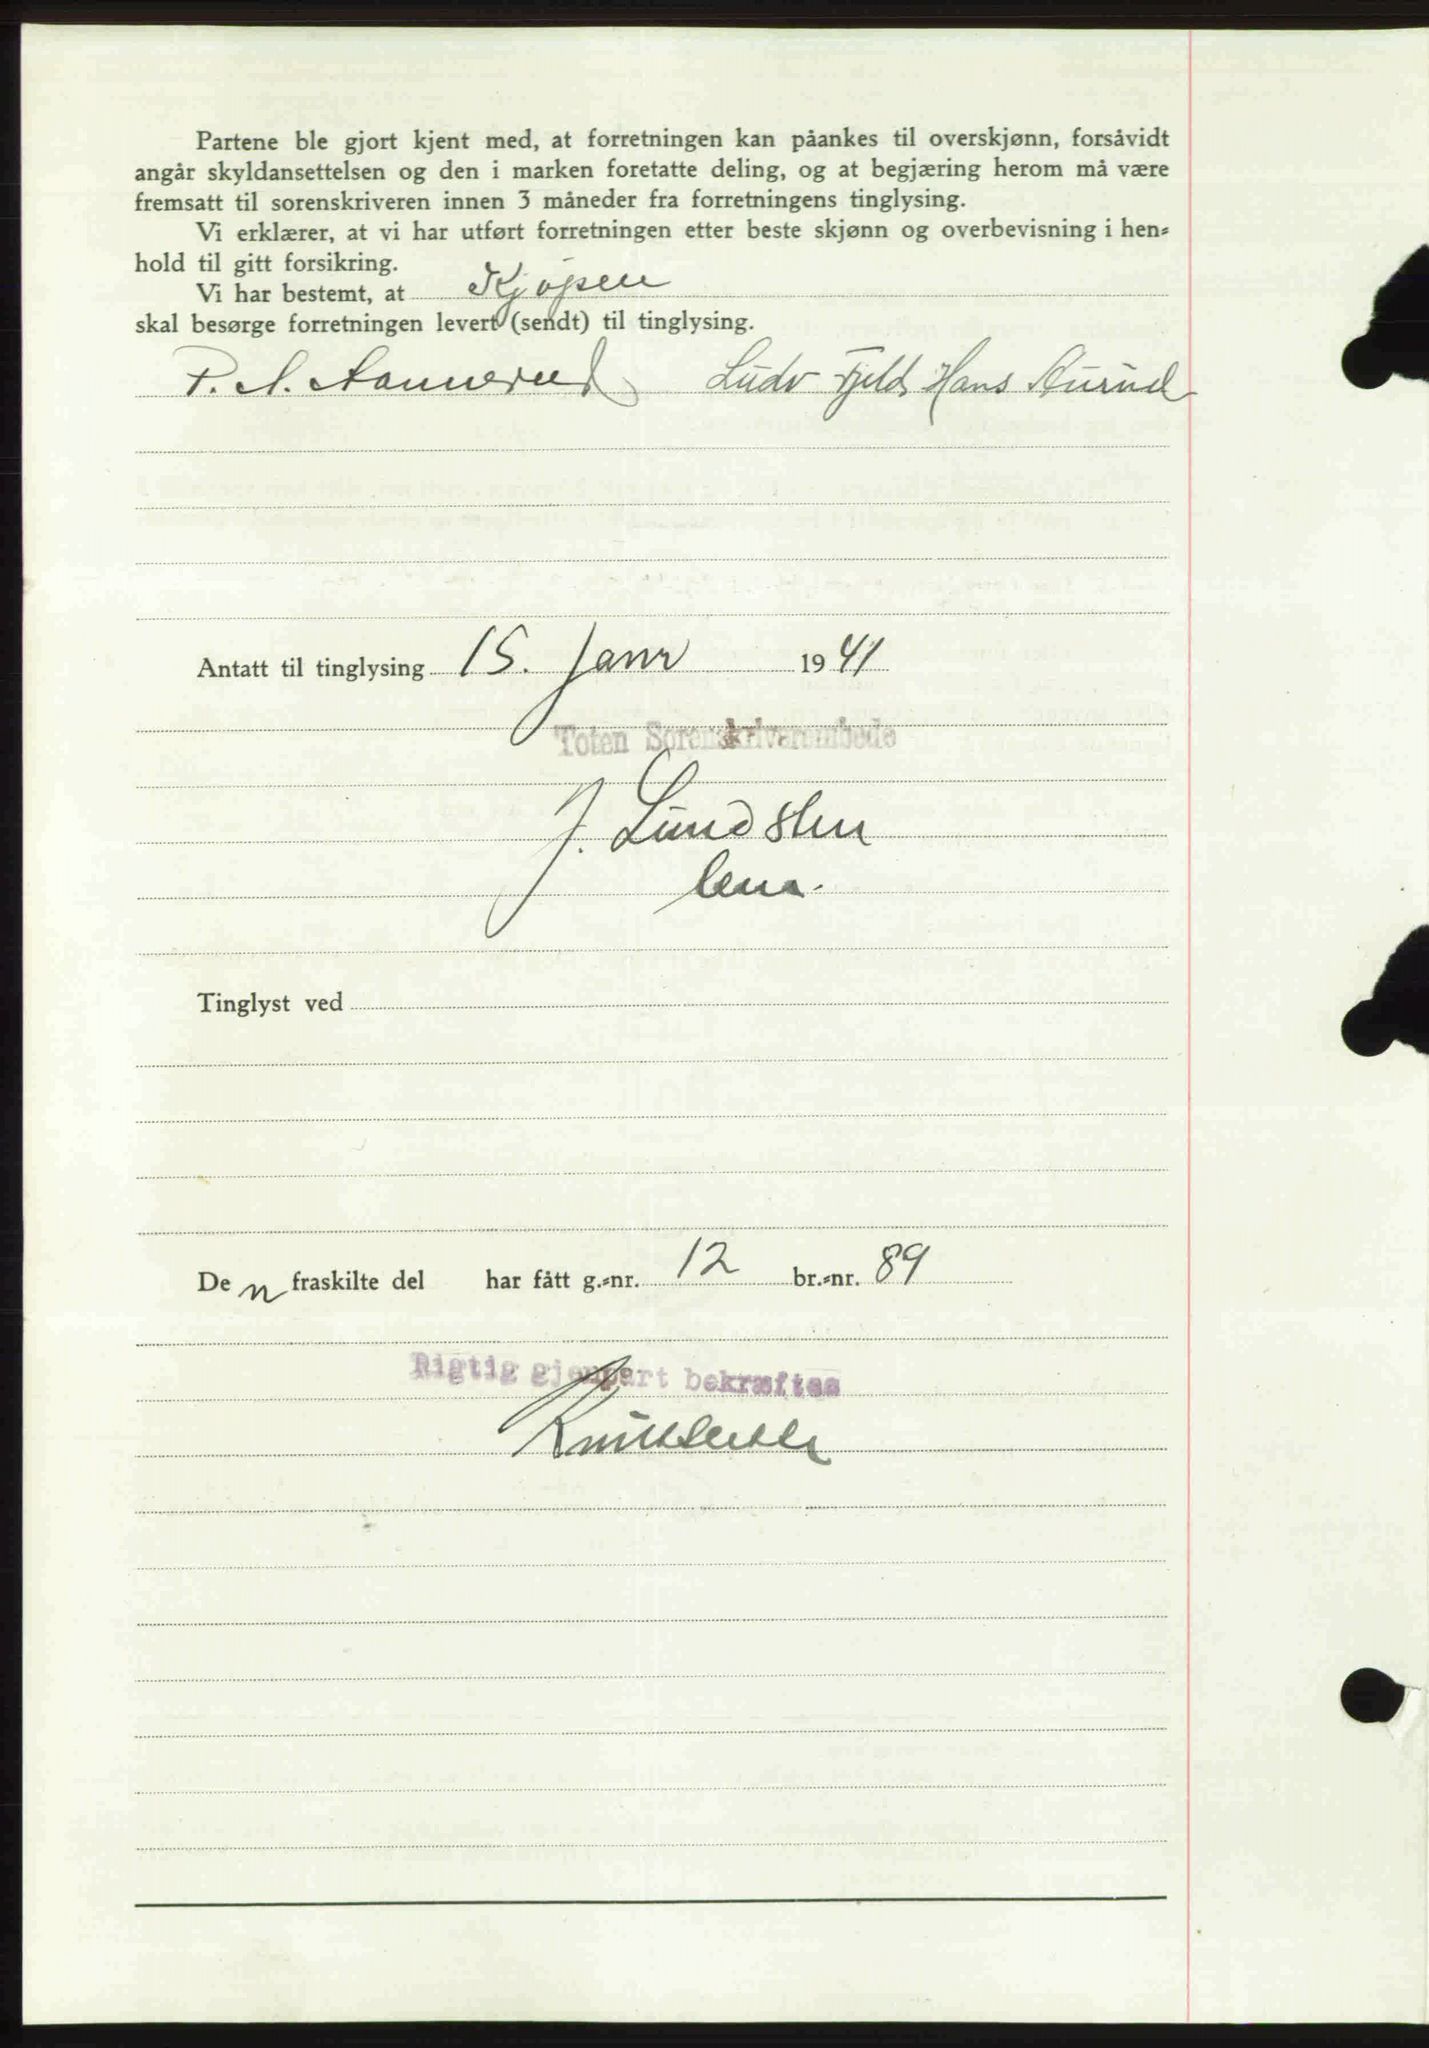 Partene ble gjort kjent med, at forretningen kan påankes til overskjønn, forsåvidt
angår skyldansettelsen og den i marken foretatte deling, og at begjæring herom må være
fremsatt til sorenskriveren innen 3 måneder fra forretningens tinglysing.
Vi erklærer, at vi har utført forretningen etter beste skjønn og overbevisning i hen-
hold til gitt forsikring.
Vi har bestemt, at Kjøpen
skal besørge forretningen levert (sendt) til tinglysing.
P. A. Aannerud Ludv Fjeld Hans Aurud
Antatt til tinglysing 15. Janr 1941
Toten Sorenskriverembede
J. Lundsten
Tinglyst ved
Den fraskilte del har fått g.-nr. 12 br.-nr. 89
Rigtig gjenpart bekræftes